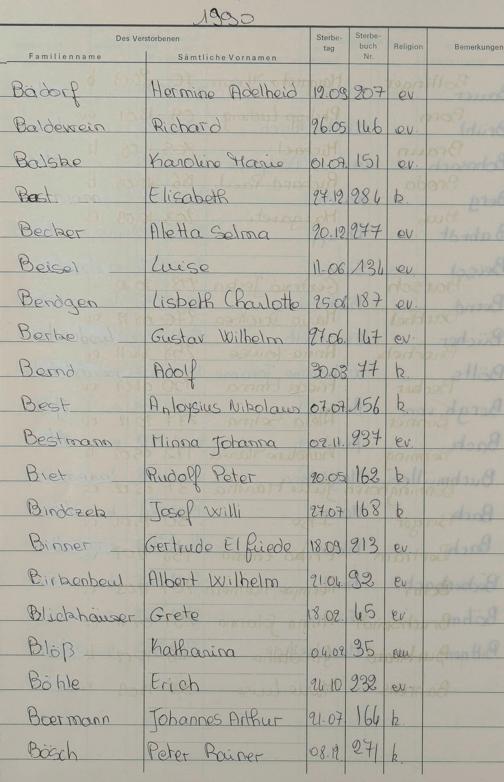 1990
Des Verstorbenen Sterbe- Sterbe- Religion Bemerkungen
Familienname Sämtliche Vornamen tag buch Nr.
Badorf Hermine Adelheid 12.09 207 ev
Baldewein Richard 26.05 146 ev.
Balske Karoline Marie 01.07. 151 ev.
Bast Elisabeth 27.12. 284 k.
Becker Aletta Selma 20.12. 277 ev
Beisel Luise 11.06 134 ev
Bendgen Lisbeth Charlotte 25.08 187 ev.
Berke Gustav Wilhelm 27.06. 147 ev.
Bernd Adolf 30.03 77 k.
Best Aloysius Nikolaus 07.07. 156 k
Bestmann Minna Johanna 02.11. 237 ev.
Biet Rudolf Peter 20.05 162 k.
Bindczek Josef Willi 27.07 168 k.
Binner Gertrude Elfriede 18.09. 213 ev
Birkenbeul Albert Wilhelm 21.04. 92 ev
Blickhäuser Grete 18.02. 45 ev
Blöß Katharina 04.02 35
Böhle Erich 24.10 232 ev.
Boermann Johannes Arthur 21.07 164 k.
Bösch Peter Rainer 08.12. 271 k.